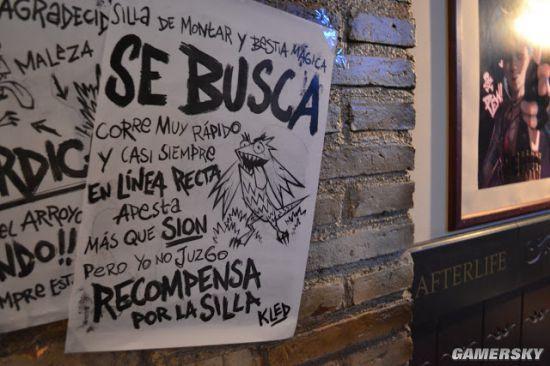 AGRADECID
MALEZA
RDIC
EL ARROYO
NDO!!
MPRE EST
SILLA DE MONTAR Y BESTIA MÁGICA
SE BUSCA
CORRE MUY RÁPIDO
Y CASI SIEMPRE
EN LÍNEA RECTA
APESTA
MÁS QUE SION
PERO YO NO JUZGO
RECOMPENSA
POR LA SILLA
KLED
AFTERLIFE
GAMERSKY